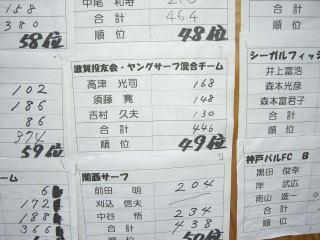 158
380
58位
102
186
86
374
59位
ーム
6
172
188
366
中尾 和寿
合計 464
順位 48位
滋賀投友会・ヤングサーフ混合チーム
高津 光司 168
須藤 寛 148
吉村 久夫 130
合計 446
順位 49位
関西サーフ
前田 明 204
刈込 信夫
中谷 悟 234
合計 438
順位 50位
合計
順位
シーガルフィッシ
井上富浩
森本光彦
森本富君子
合計
順位
神戸パルFC B
黒田 俊幸
岸 武広
南山 進一
合計
順位